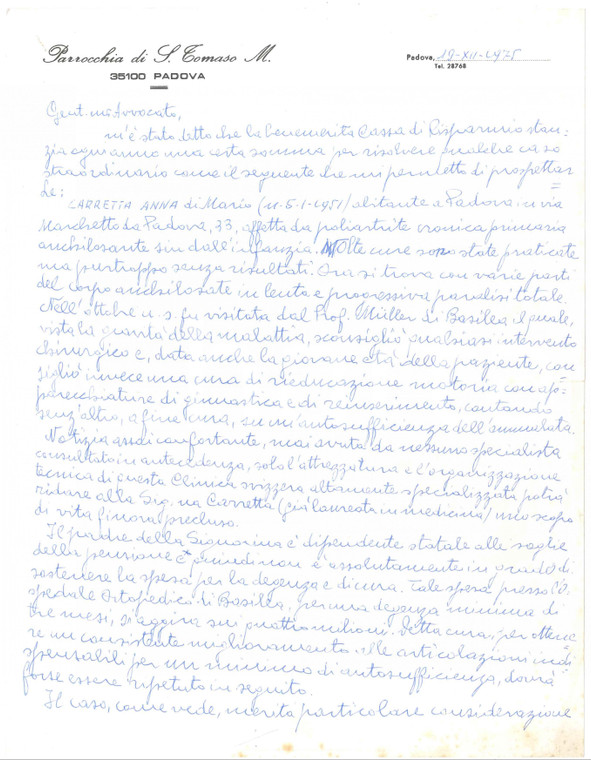 Parrocchia di S. Tomaso M.
35100 PADOVA
Padova, 19-XII-1975
Tel. 28768
Gent.mo Avvocato,
m'è stato detto che la benemerita Cassa di Risparmio stan=
zia ogni anno una certa somma per risolvere qualche caso
straordinario come il seguente che mi permetto di prospettar=
Le:
CARRETTA ANNA di Mario (n. 5-1-1951) abitante a Padova in via
Marchetto da Padova, 33, affetta da poliartrite cronica primaria
anchilosante sin dall'infanzia. Molte cure sono state praticate
ma purtroppo senza risultati. Ora si trova con varie parti
del corpo anchilosate in lenta e progressiva paralisi totale.
Nell'ottobre u.s. fu visitata dal Prof. Müller di Basilea il quale,
vista la gravità della malattia, sconsigliò qualsiasi intervento
chirurgico e, data anche la giovane età della paziente, con
sigliò invece una cura di rieducazione motoria con ap=
parecchiature di ginnastica e di reinserimento, contando
senz'altro, a fine cura, su un'autosufficienza dell'ammalata.
Notizia assai confortante, mai avuta da nessuno specialista
consultato in antecedenza, solo l'attrezzatura e l'organizzazione
tecnica di questa Clinica svizzera altamente specializzata potrà
ridare alla Sig.na Carretta (già laureata in medicina) uno scopo
di vita finora precluso.
Il padre della Signorina è dipendente statale alle soglie
della pensione e quindi non è assolutamente in grado di
sostenere la spesa per la degenza e di cura. Tale spesa presso l'O=
spedale Ortopedico di Basilea, per una degenza minima di
tre mesi, si aggira sui quattro milioni. Detta cura, per ottene
re un consistente miglioramento alle articolazioni indi
spensabili per un minimo di autosufficienza, dovrà
forse essere ripetuta in seguito.
Il caso, come vede, merita particolare considerazione